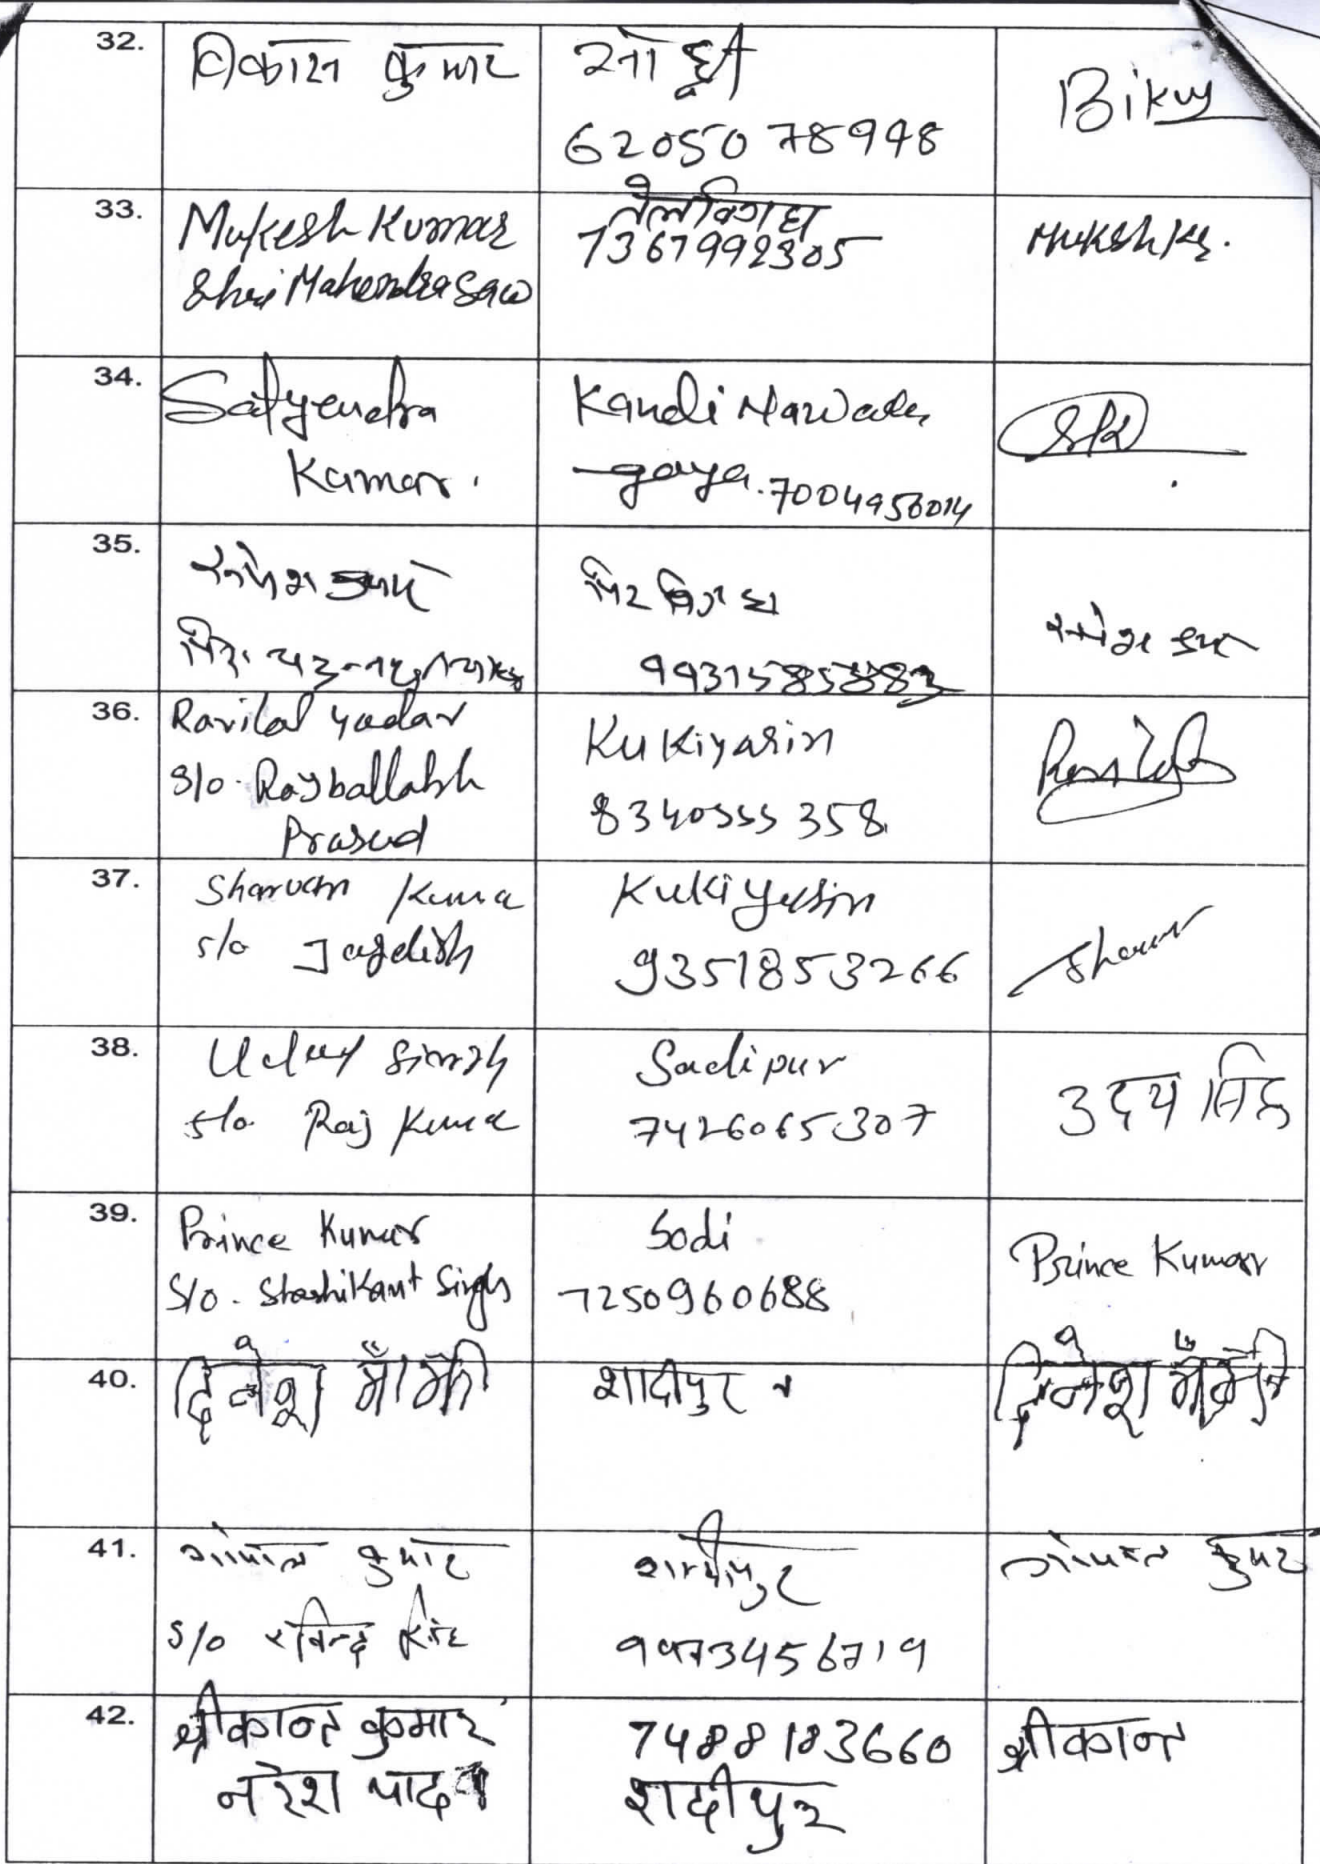 32.
विकाश कुमार
62050 78948
33.
Mukesh Kumar
Shri Mahendra Saw
तेलबिगहा
7367992305
Mukesh Kr.
34.
Satyendra
Kumar.
Kandi Nawada,
gaya. 7004956014
35.
36.
Ravilal Yadav
S/o. Rajballabh
Prasad
Kukiyasin
8340555 358
37.
Sharvan Kuma
s/o Jagdish
Kukiyasin
9351853266
Sharwn
38.
Uday Singh
s/o Raj Kuma
Sadipur
7426065307
उदय सिंह
39.
Prince Kumar
S/O. Shashikant Singh
Sodi
7250960688
Prince Kumar
40.
दिनेश माँझी
शादीपुर
दिनेश माँझी
41.
कुमार
S/o रविन्द्र सिंह
9973456719
कुमार
42.
श्रीकान्त कुमार
नरेश यादव
7488183660
शादीपुर
श्रीकान्त